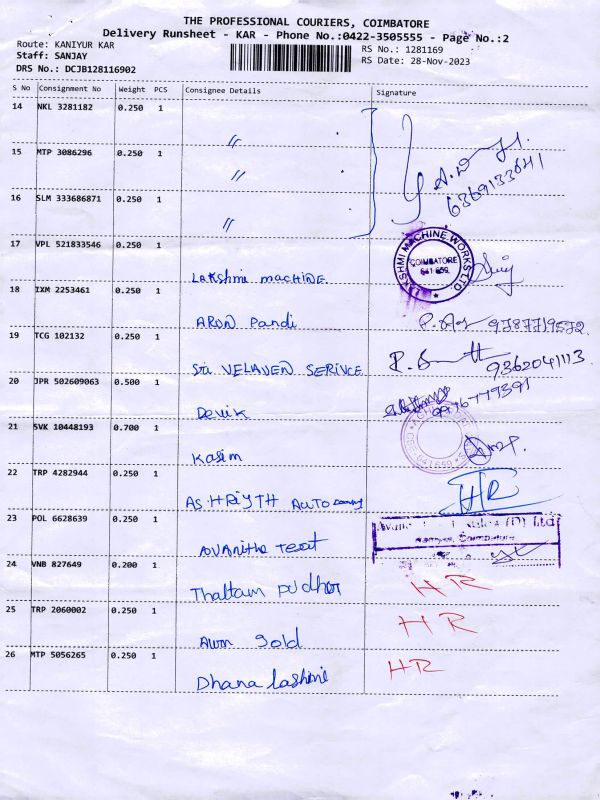 THE PROFESSIONAL COURIERS, COIMBATORE
Delivery Runsheet - KAR - Phone No.:0422-3505555 - Page No.:2
Route: KANIYUR KAR RS No.: 1281169
Staff: SANJAY RS Date: 28-Nov-2023
DRS No.: DCJB128116902
S No Consignment No Weight PCS Consignee Details Signature
14 NKL 3281182 0.250 1 〃
15 MTP 3086296 0.250 1 〃
6369133641
16 SLM 333686871 0.250 1 〃
17 VPL 521833546 0.250 1 Lakshmi machine
LAKSHMI MACHINE WORKS LTD.
COIMBATORE
641 659
18 IXM 2253461 0.250 1 ARUN Pandi 9787719572
19 TCG 102132 0.250 1 Sri VELAVEN SERIVCE 9362041113
20 JPR 502609063 0.500 1 Devik
21 SVK 10448193 0.700 1 Kasim
641 659
22 TRP 4282944 0.250 1 AS HRIYTH AUTO HR
23 POL 6628639 0.250 1 AVANitha Text
24 VNB 827649 0.200 1 Thattam pudhur HR
25 TRP 2060002 0.250 1 Gold HR
26 MTP 5056265 0.250 1 Dhana lashmi HR